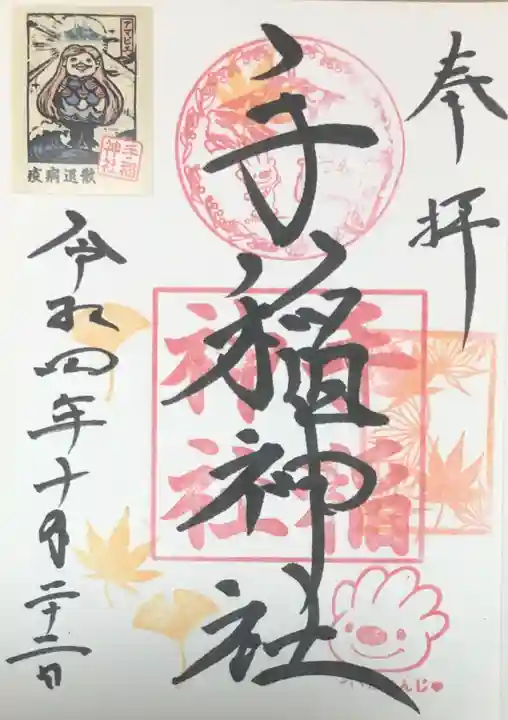 奉拝
手稲神社
手稲神社
令和四年十月二十二日
アマビエ
手稲神社
疫病退散
んじ♥